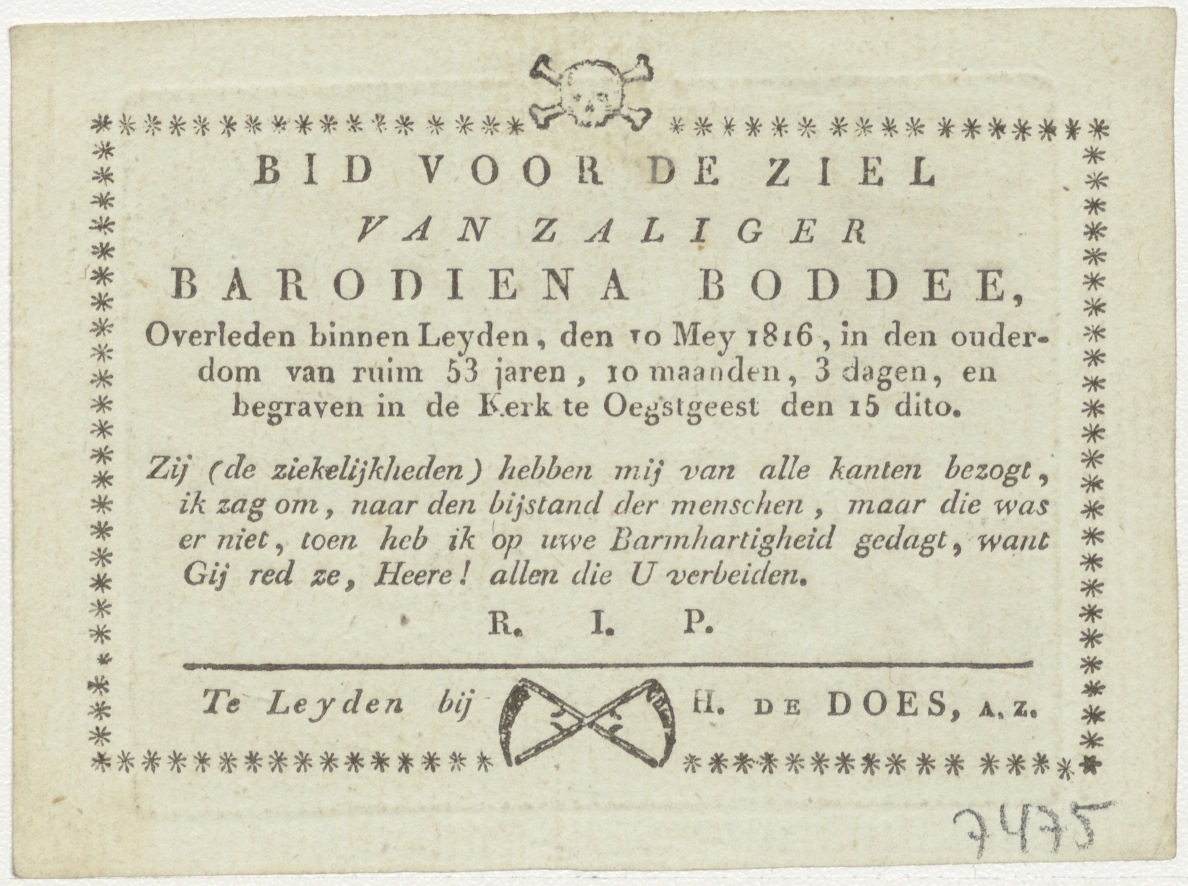 BID VOOR DE ZIEL
VAN ZALIGER
BARODIENA BODDEE,
Overleden binnen Leyden, den 10 Mey 1816, in den ouder-
dom van ruim 53 jaren, 10 maanden, 3 dagen, en
begraven in de Kerk te Oegstgeest den 15 dito.
Zij (de ziekelijkheden) hebben mij van alle kanten bezogt,
ik zag om, naar den bijstand der menschen, maar die was
er niet, toen heb ik op uwe Barmhartigheid gedagt, want
Gij red ze, Heere! allen die U verbeiden.
R. I. P.
Te Leyden bij H. DE DOES, A. Z.
7475